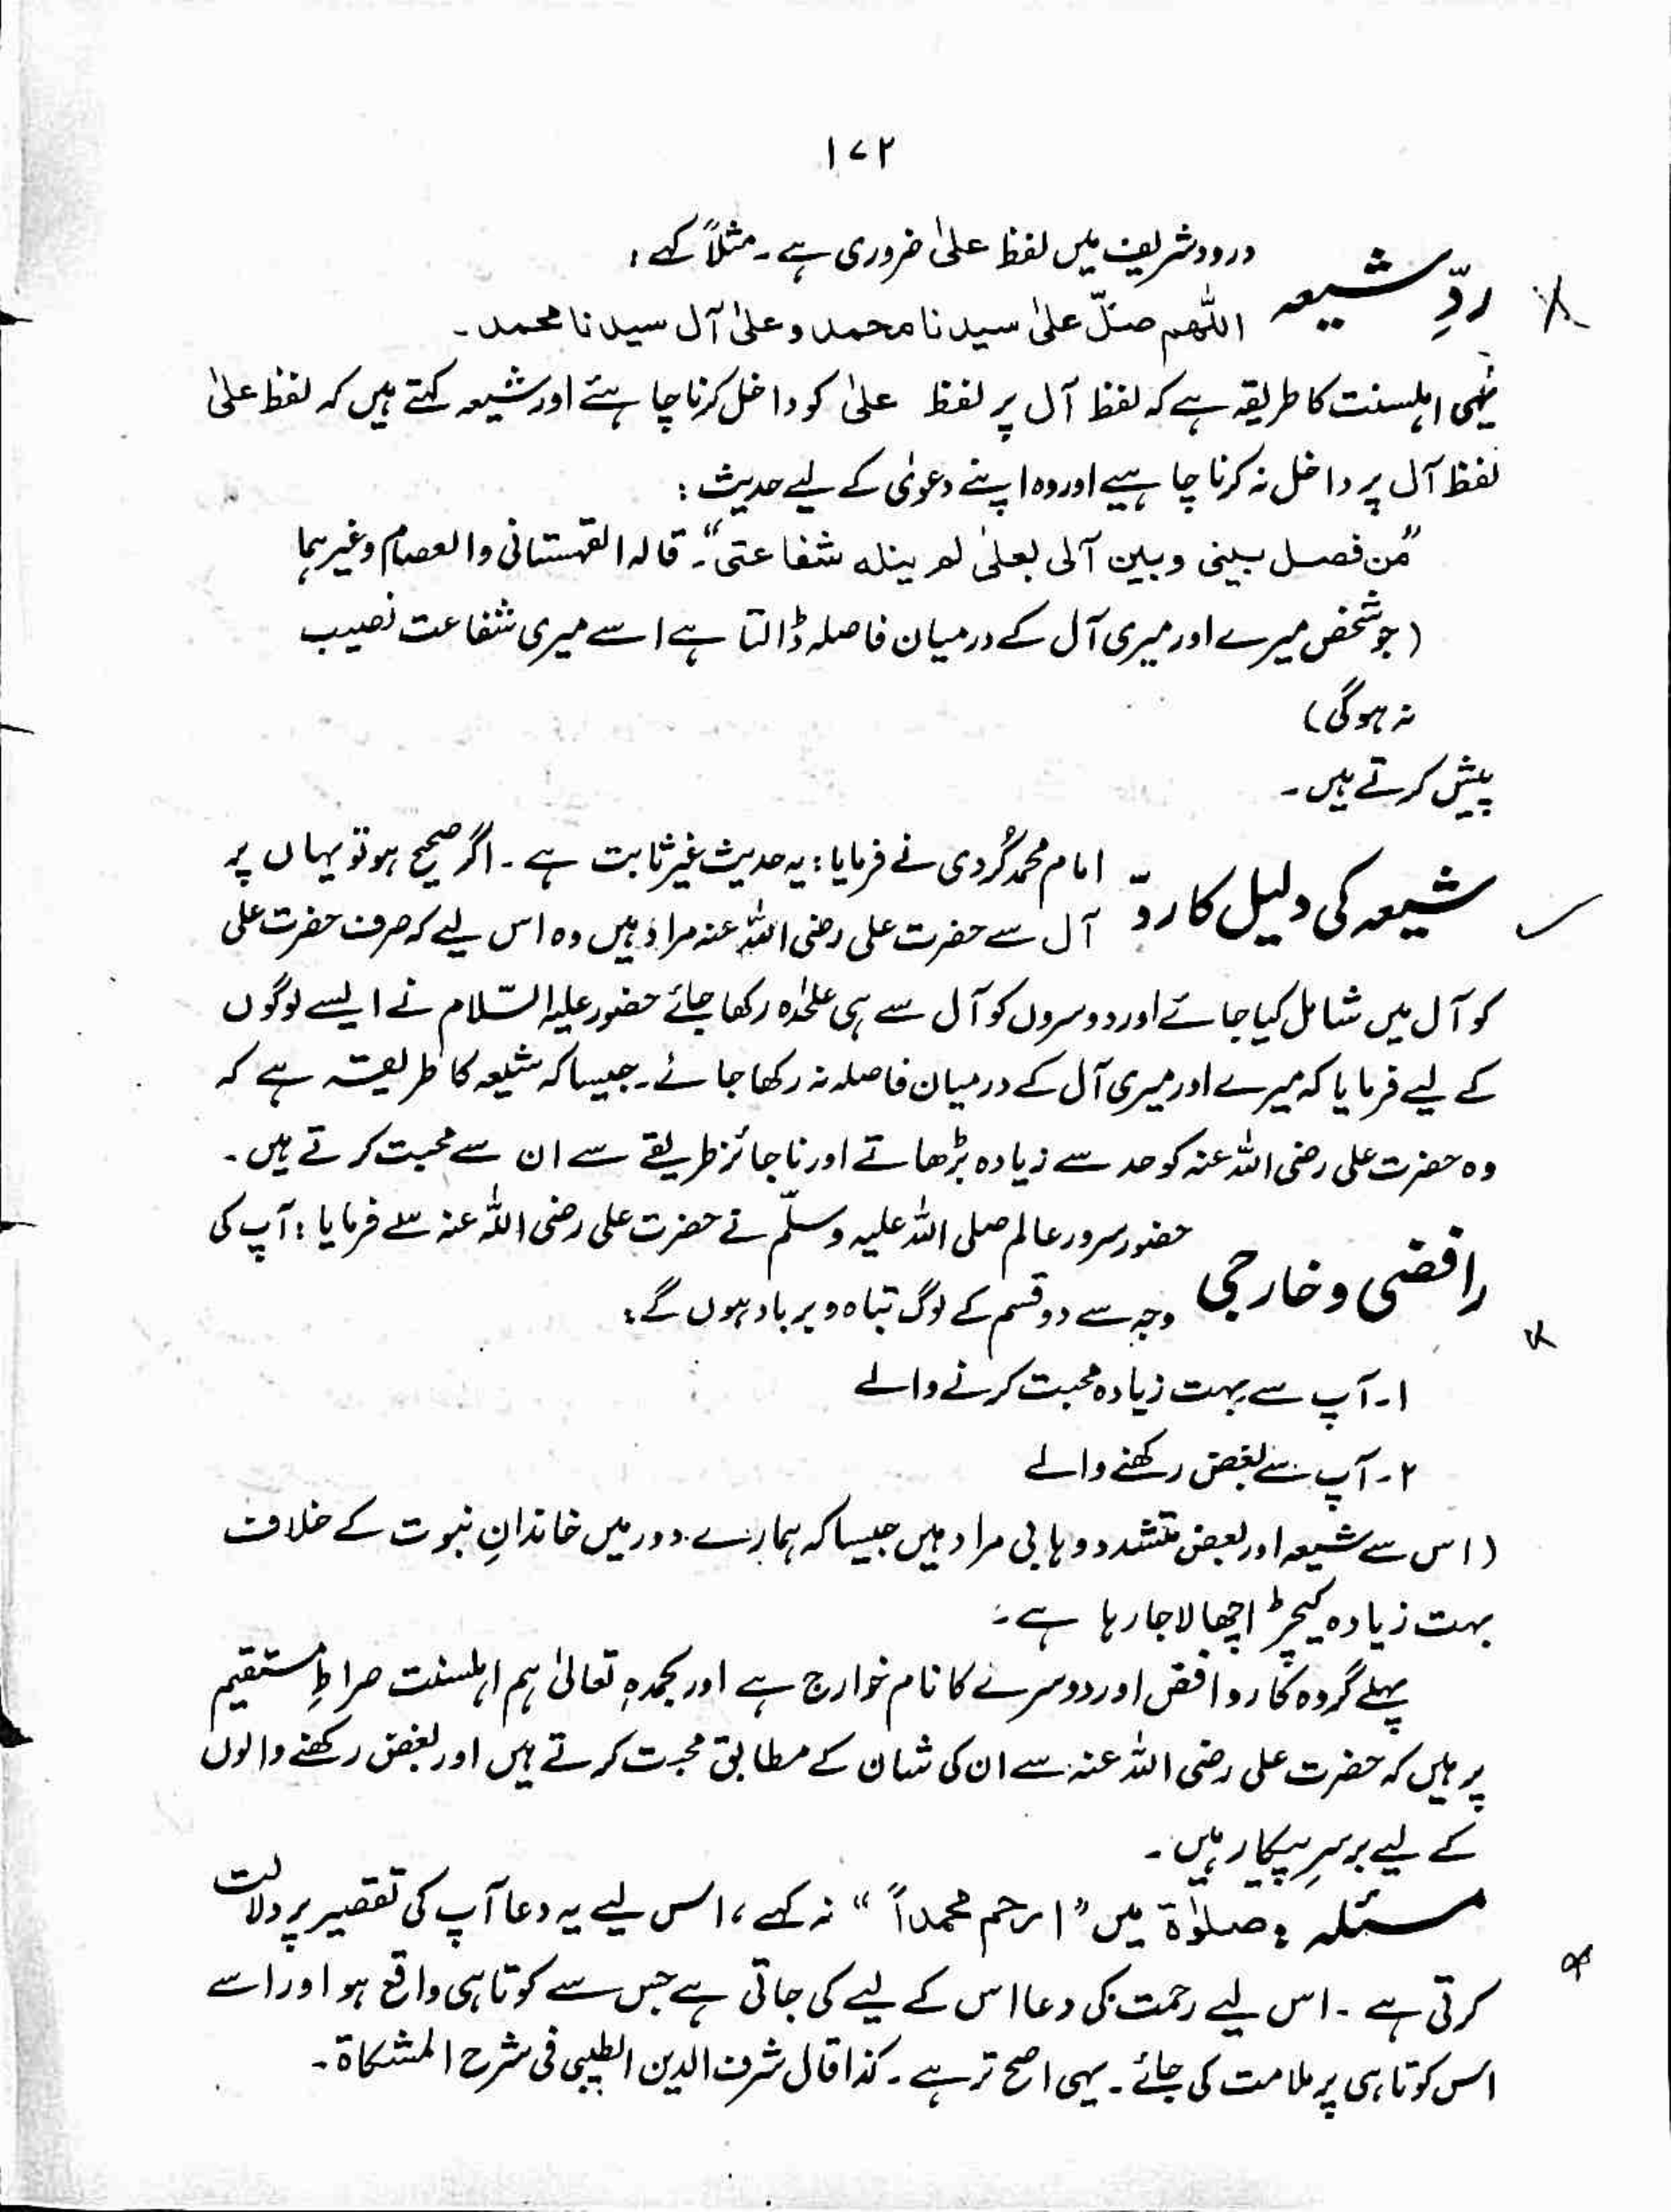 ۱۷۲
ردِّ شیعہ درود شریف میں لفظ علیٰ ضروری ہے۔ مثلاً کہے :
اللّٰھم صلّ علیٰ سیدنا محمد وعلیٰ آل سیدنا محمد۔
یہی اہلسنت کا طریقہ ہے کہ لفظ آل پر لفظ علیٰ کو داخل کرنا چاہئے اور شیعہ کہتے ہیں کہ لفظ علیٰ
لفظ آل پر داخل نہ کرنا چاہیے اور وہ اپنے دعوٰی کے لیے حدیث :
”من فصل بینی وبین آلی بعلیٰ لم ینلہ شفاعتی“۔ قالہ القہستانی والعصام وغیرہما
(جو شخص میرے اور میری آل کے درمیان فاصلہ ڈالتا ہے اسے میری شفاعت نصیب
نہ ہوگی)
پیش کرتے ہیں۔
شیعہ کی دلیل کا ردّ امام محمد کُردی نے فرمایا : یہ حدیث غیر ثابت ہے۔ اگر صحیح ہو تو یہاں پر
آل سے حضرت علی رضی اللہ عنہ مراد ہیں وہ اس لیے کہ صرف حضرت علی
کو آل میں شامل کیا جائے اور دوسروں کو آل سے ہی علٰحدہ رکھا جائے حضور علیہ السّلام نے ایسے لوگوں
کے لیے فرمایا کہ میرے اور میری آل کے درمیان فاصلہ نہ رکھا جائے۔ جیسا کہ شیعہ کا طریقہ ہے کہ
وہ حضرت علی رضی اللہ عنہ کو حد سے زیادہ بڑھاتے اور ناجائز طریقے سے ان سے محبت کرتے ہیں۔
رافضی و خارجی حضور سرور عالم صلی اللہ علیہ وسلّم نے حضرت علی رضی اللہ عنہ سے فرمایا : آپ کی
وجہ سے دو قسم کے لوگ تباہ و برباد ہوں گے :
۱۔ آپ سے بہت زیادہ محبت کرنے والے
۲۔ آپ سے بغض رکھنے والے
(اس سے شیعہ اور بعض متشدد وہابی مراد ہیں جیسا کہ ہمارے دور میں خاندانِ نبوت کے خلاف
بہت زیادہ کیچڑ اچھالا جا رہا ہے۔
پہلے گروہ کا روافض اور دوسرے کا نام خوارج ہے اور بحمدہٖ تعالیٰ ہم اہلسنت صراطِ مستقیم
پر ہیں کہ حضرت علی رضی اللہ عنہ سے ان کی شان کے مطابق محبت کرتے ہیں اور بغض رکھنے والوں
کے لیے برسرِ پیکار ہیں۔
مسئلہ : صلوٰۃ میں ”ارحم محمداً“ نہ کہے ، اس لیے یہ دعا آپ کی تقصیر پر دلالت
کرتی ہے۔ اس لیے رحمت کی دعا اس کے لیے کی جاتی ہے جس سے کوتاہی واقع ہو اور اسے
اس کوتاہی پر ملامت کی جائے۔ یہی اصح تر ہے۔ کذا قال شرف الدین الطیبی فی شرح المشکاۃ۔